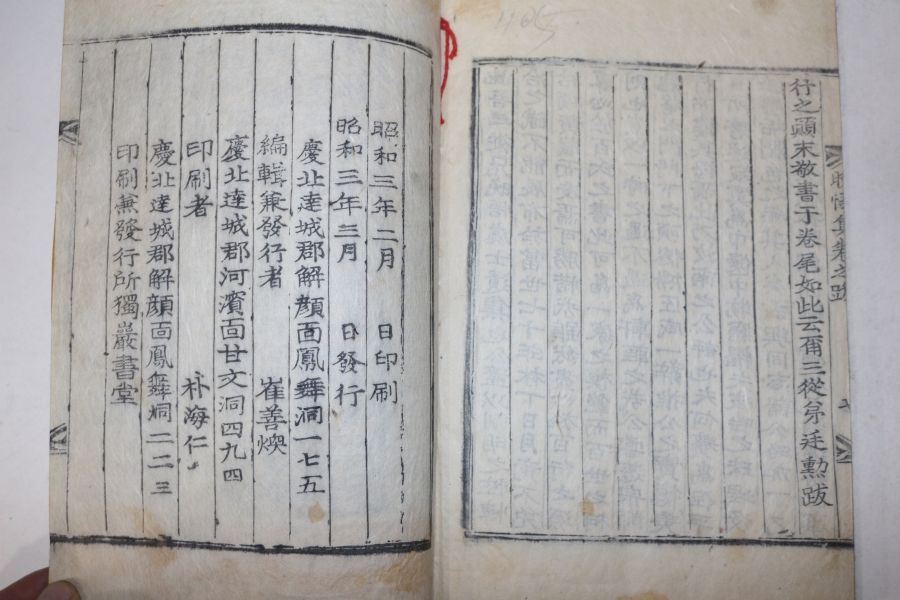 行之顚末敬書于卷尾如此云爾三從弟廷勳跋
昭和三年二月 日印刷
昭和三年三月 日發行
慶北達城郡解顔面鳳舞洞一七五
編輯兼發行者 崔善煥
慶北達城郡河濱面甘文洞四九四
印刷者 朴海仁
慶北達城郡解顔面鳳舞洞二二三
印刷兼發行所獨巖書堂